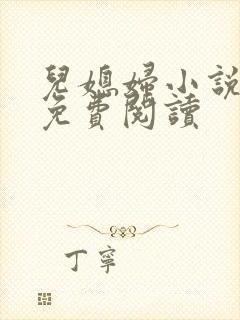 兒媳婦小說
免費閱讀
丁寧